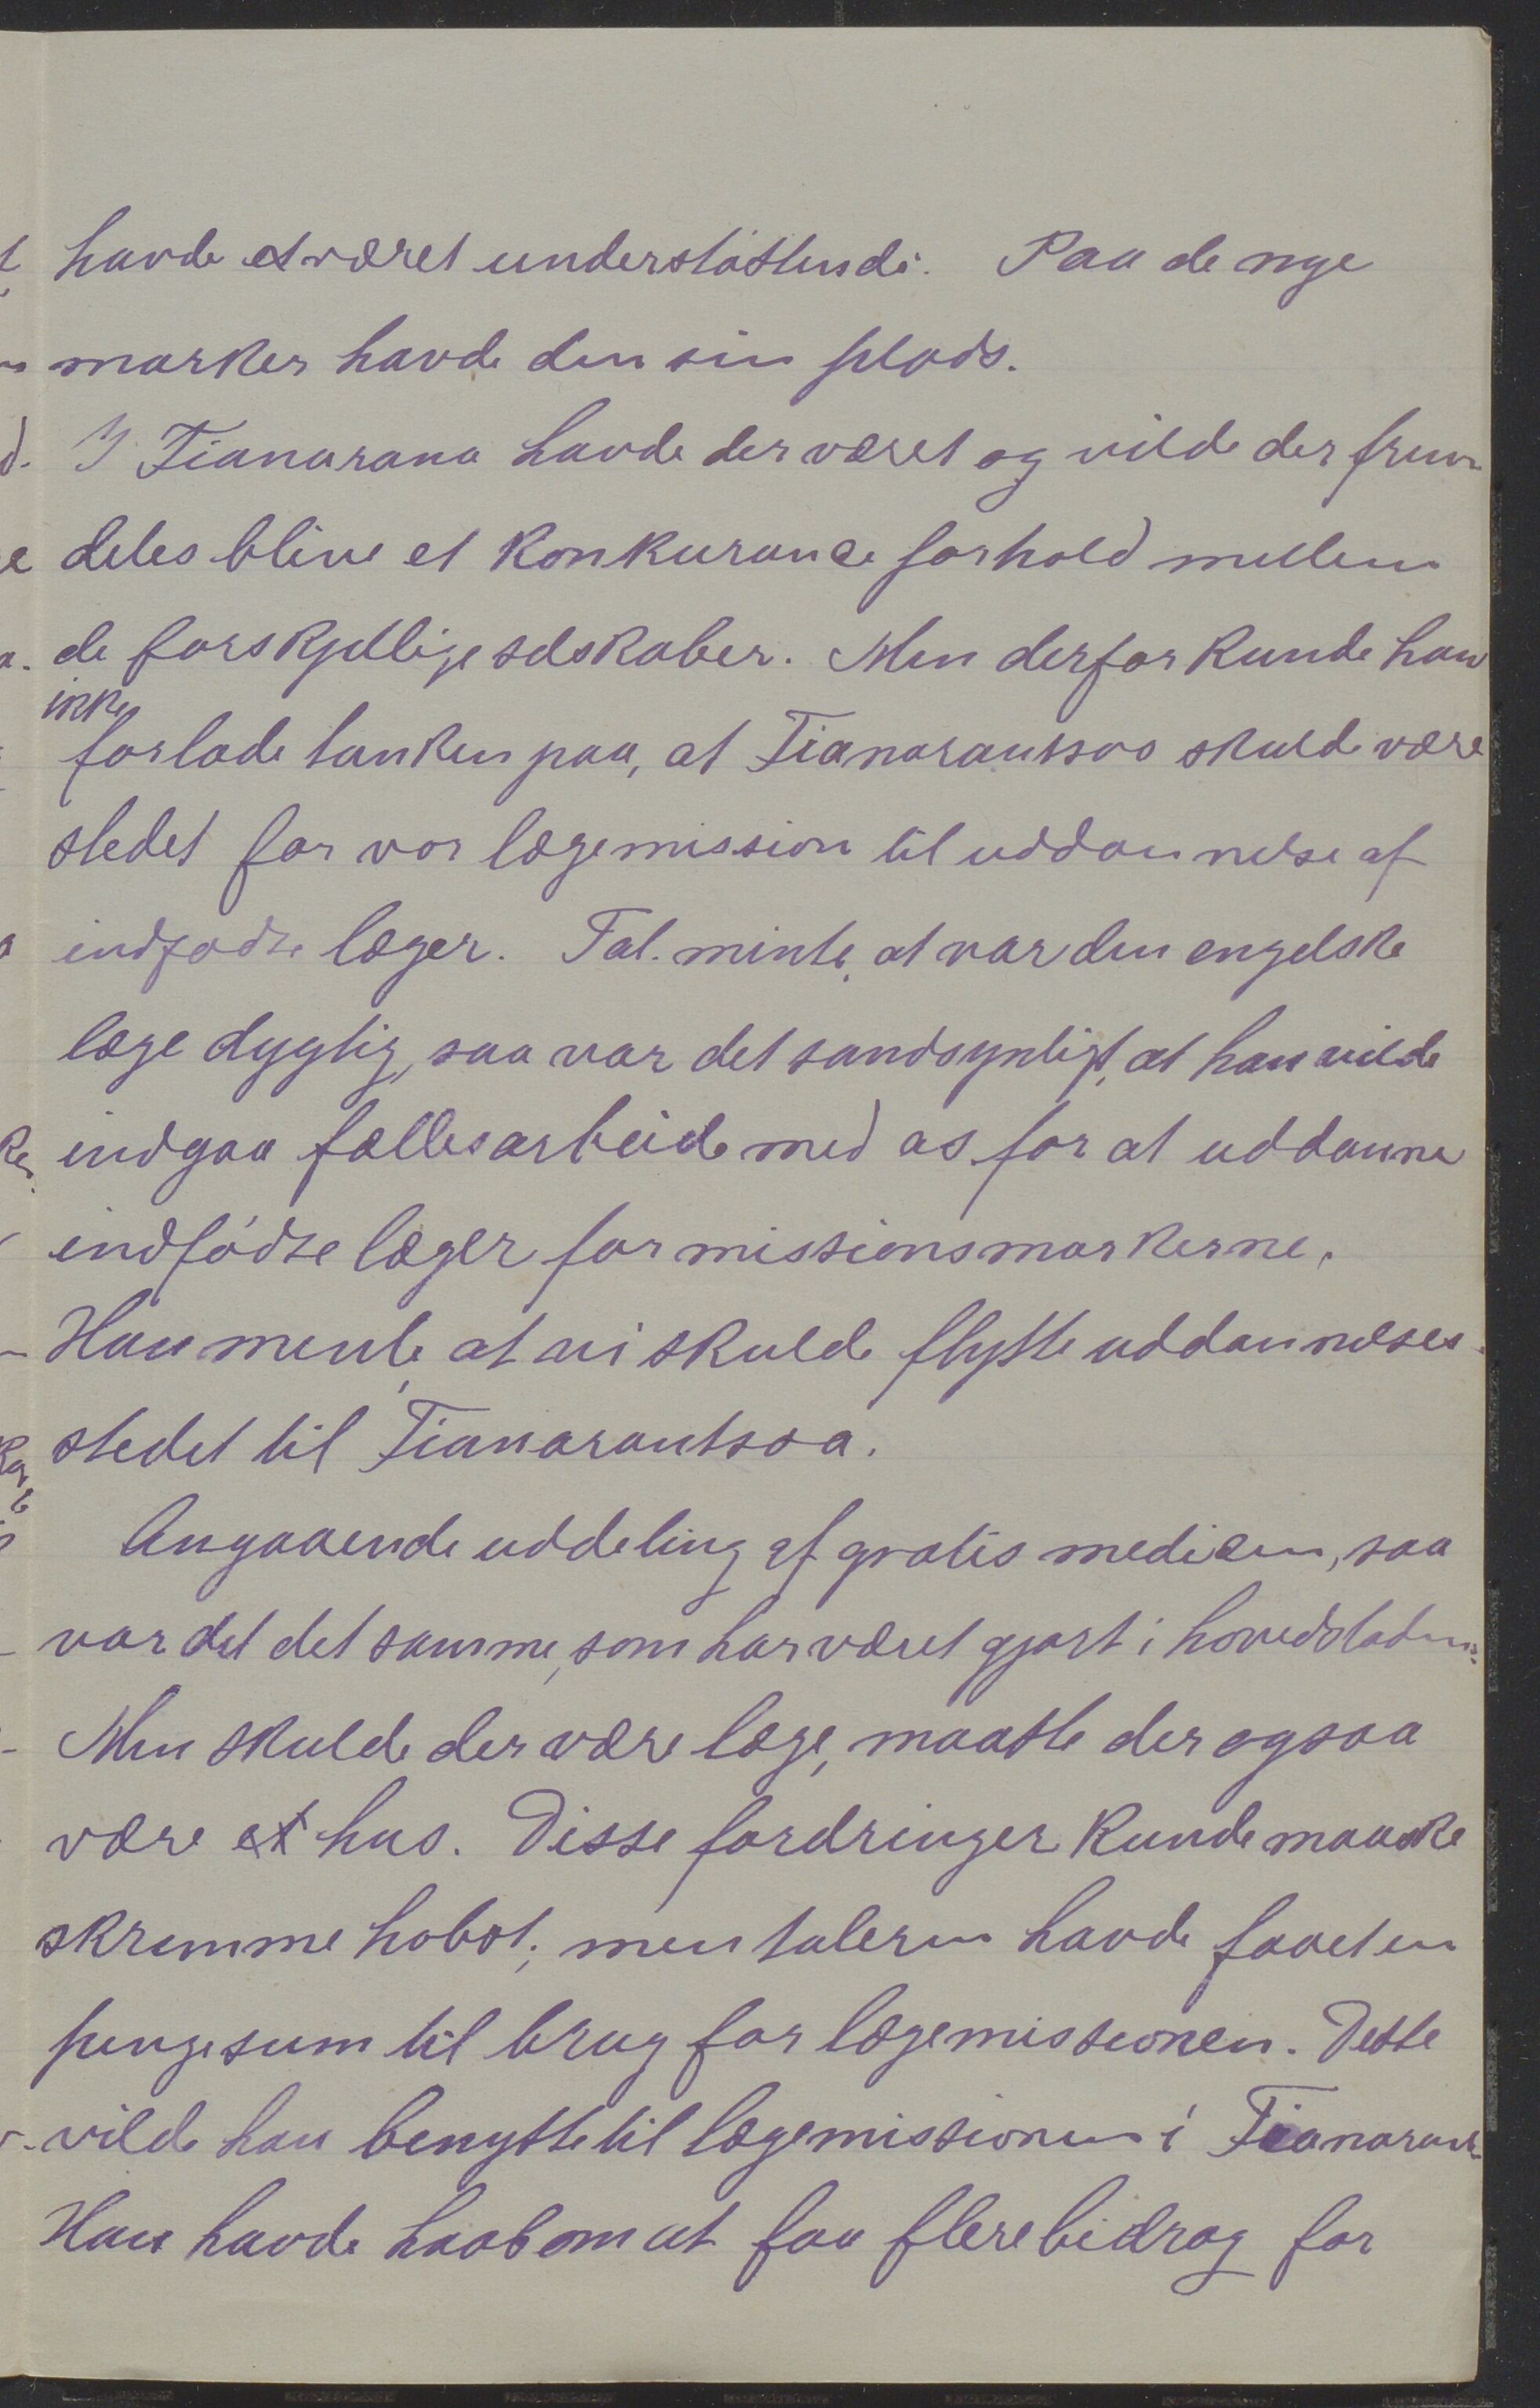 havde været understøttende. Paa de nye
marker havde den sin plads.
I Fianarana havde der været og vilde der frem
deles blive et Konkurance forhold mellem
de forskjellige selskaber. Men derfor kunde han
ikke
forlade tanken paa, at Fianarantsoa skulde være
stedet for vor lægemission til uddannelse af
indfødte læger. Tal. minte, at var den engelske
læge dygtig, saa var det sandsynligt, at han vilde
indgaa fællesarbeide med os for at uddanne
indfødte læger for missionsmarkerne.
Han mente, at vi skulde flytte uddannelses
stedet til Fianarantsoa.
Angaaende uddeling af gratis medicin, saa
var det det samme, som har været gjort i hovedstaden.
Men skulde der være læge, maatte der ogsaa
være et hus. Disse fordringer kunde maaske
skremme hobet; men taleren havde faaet en
pengesum til brug for lægemissionen. Dette
vilde han benytte til lægemissionen i Fianarant
Han havde haab om at faa flere bidrag for